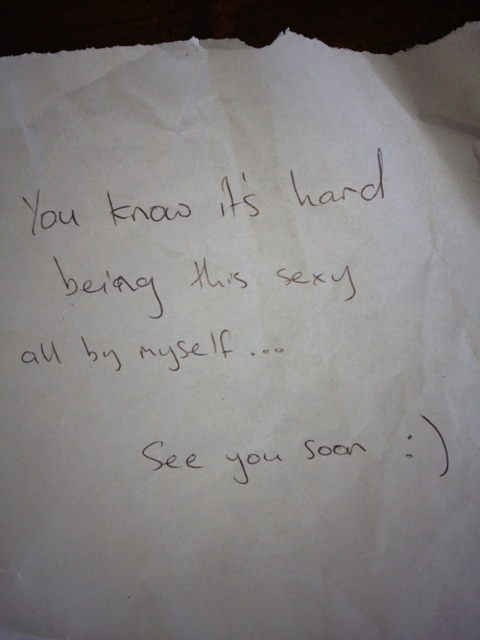 You know it's hard
being this sexy
all by myself...
See you soon :)